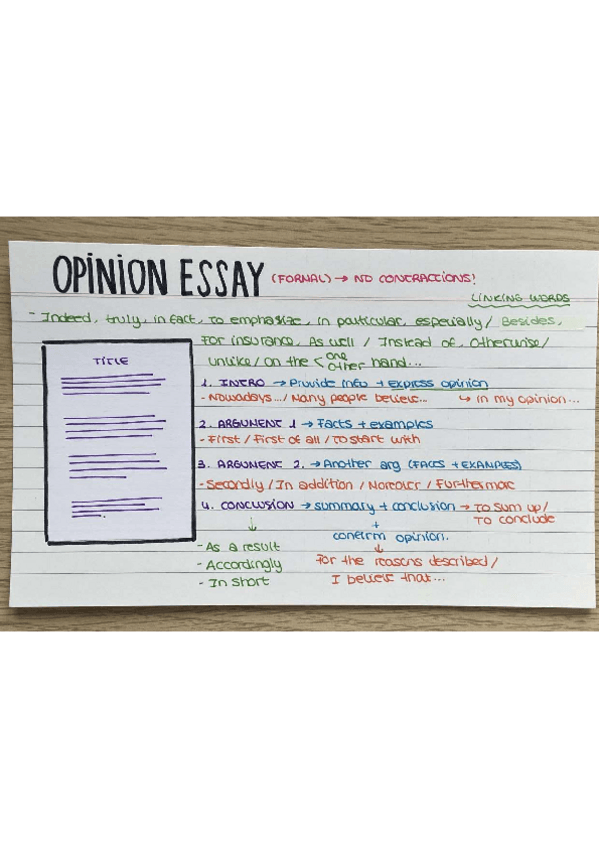 OPINION ESSAY (FORMAL) → NO CONTRACTIONS!
LINKING WORDS
- Indeed, truly, in fact, to emphasize, in particular, especially / Besides,
For insurance, As well / Instead of, Otherwise /
Unlike / on the < one other hand...
TITLE
1. INTRO → Provide info + express opinion
- Nowadays... / Many people believe... ↳ in my opinion...
2. ARGUMENT 1 → Facts + examples
- First / First of all / To start with
3. ARGUMENT 2. → Another arg (FACTS + EXAMPLES)
- Secondly / In addition / Moreover / Furthermore
4. CONCLUSION → summary + conclusion → To sum up /
To conclude
↓ +
confirm opinion.
- As a result ↓
- Accordingly For the reasons described /
- In short I believe that...